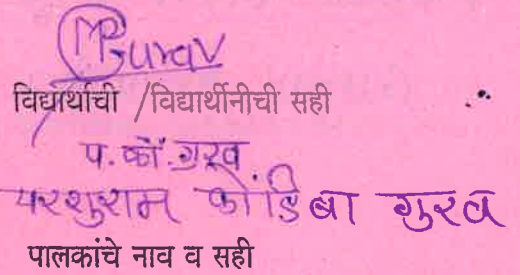 MPGurav
विद्यार्थाची /विद्यार्थीनीची सही
प. कों. गुरव.
परशुराम कोंडिबा गुरव
पालकांचे नाव व सही